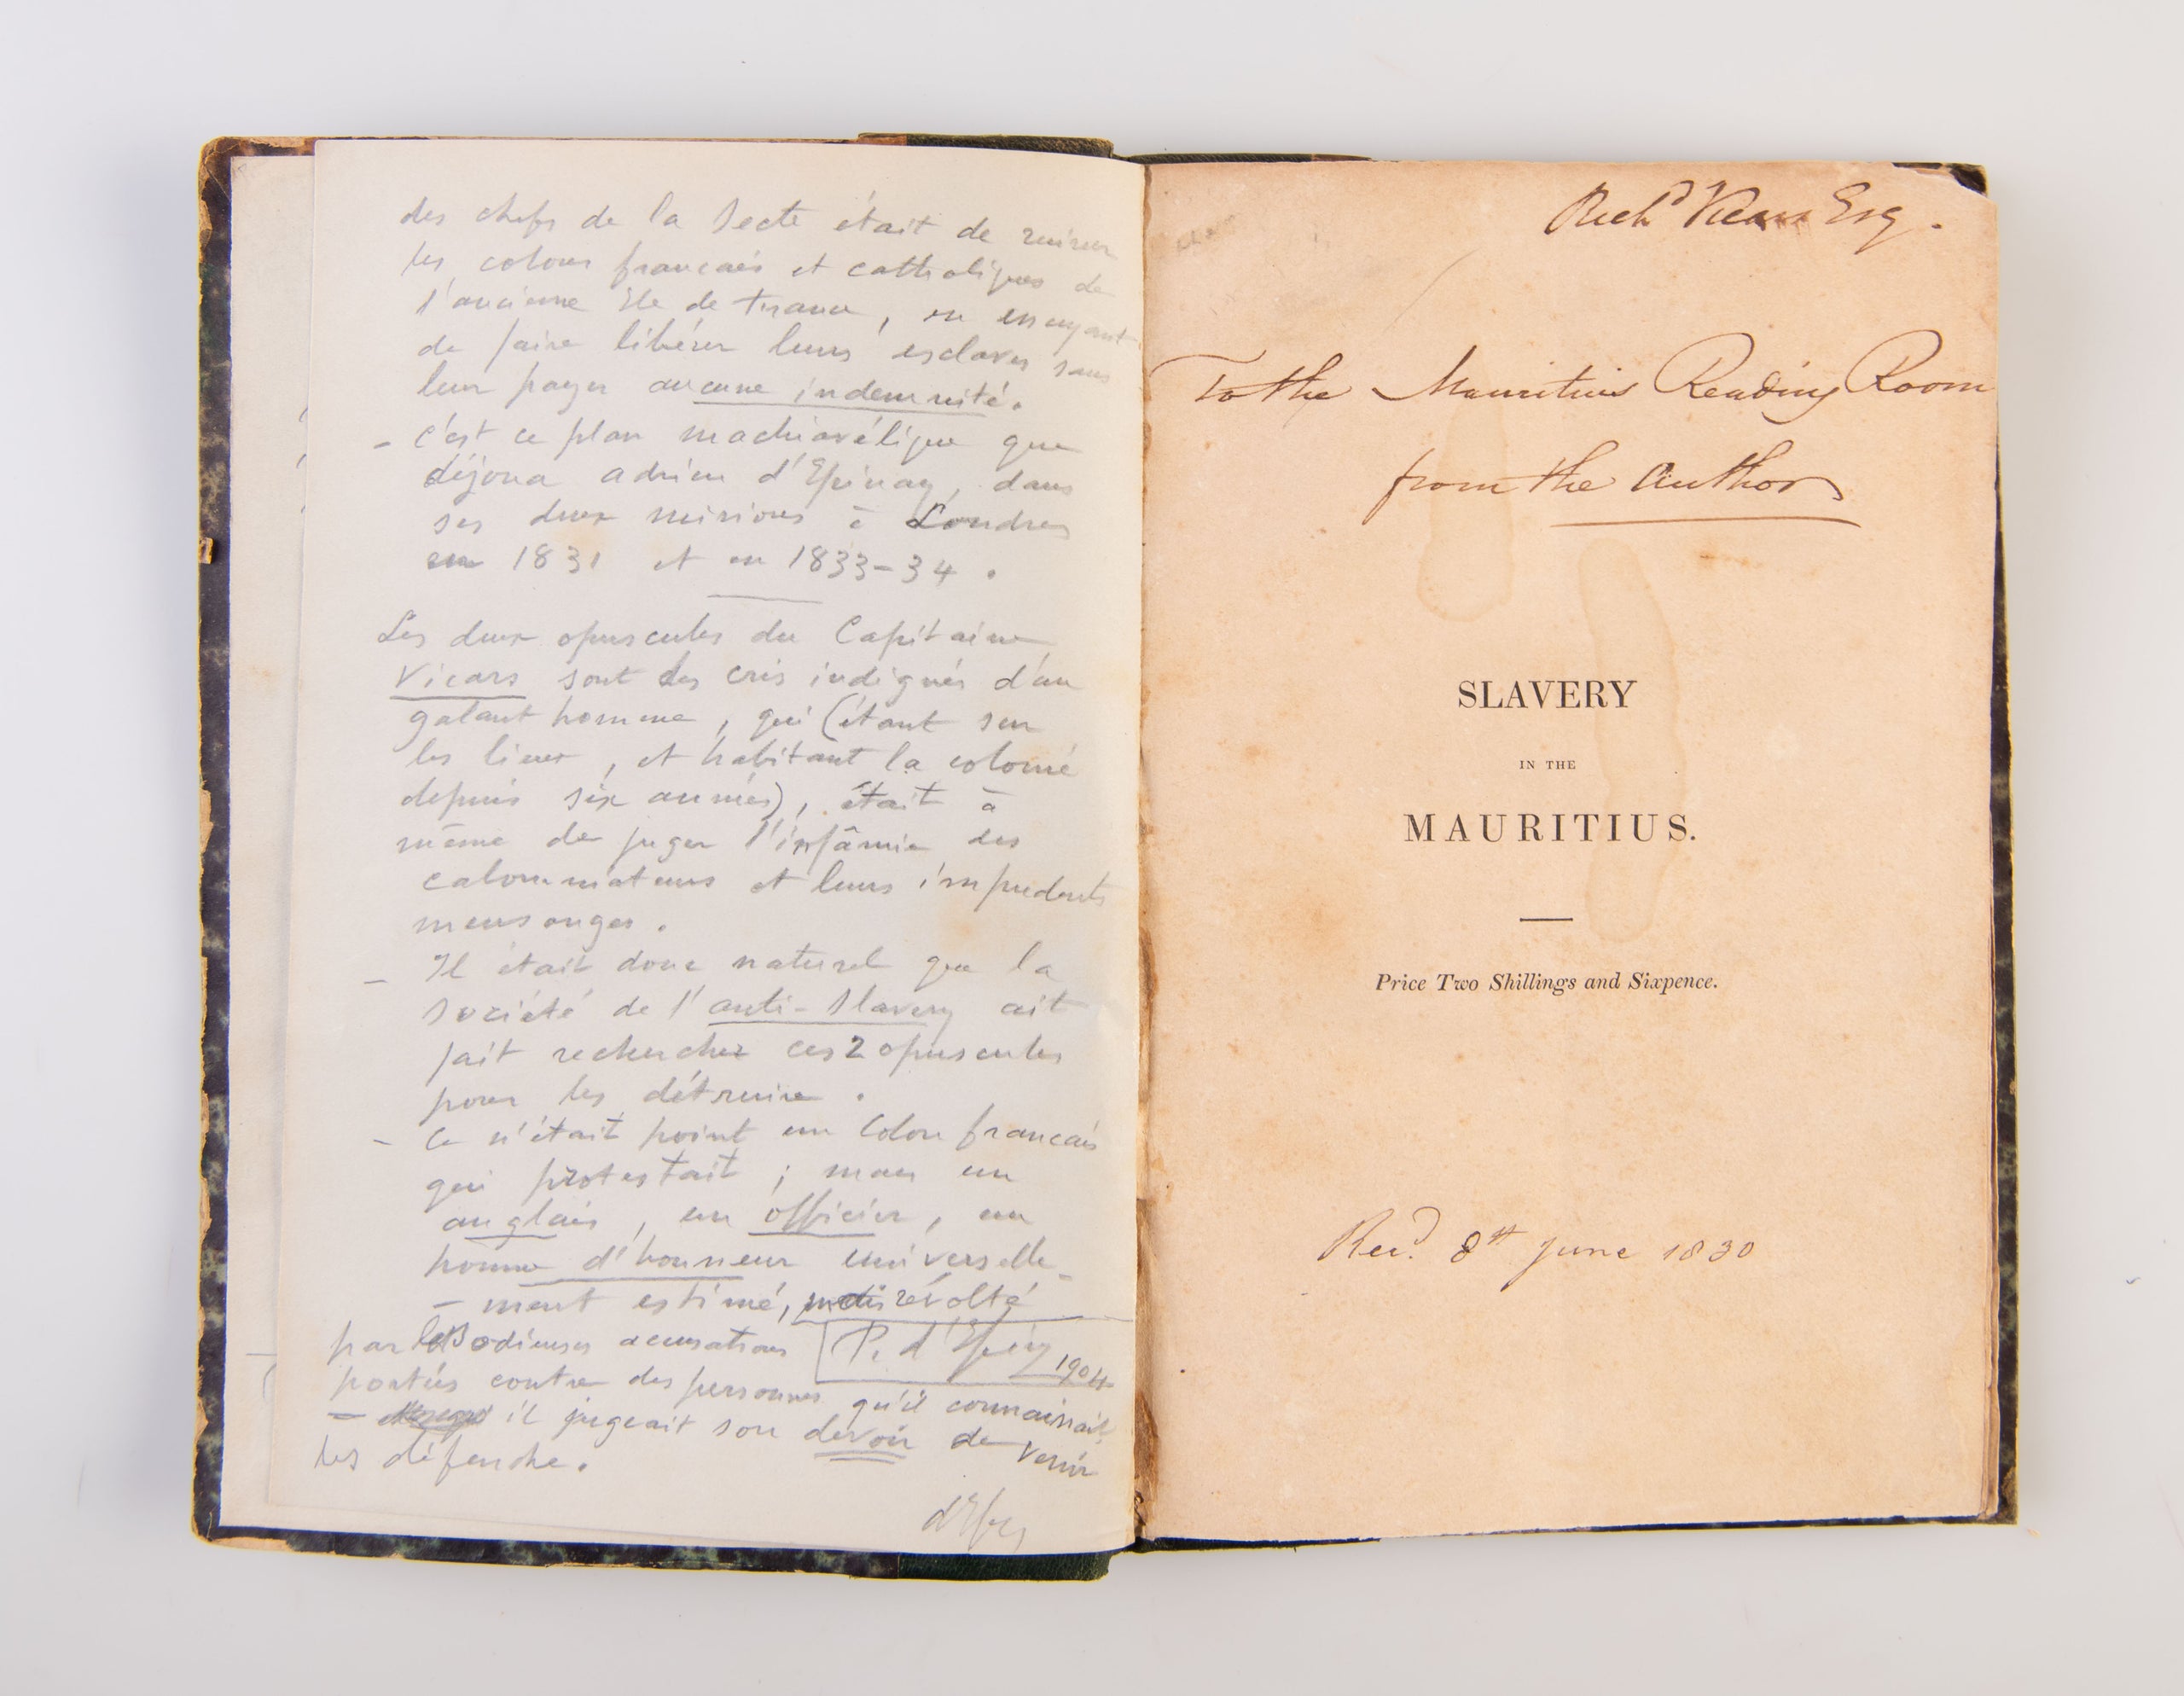 des chefs de la secte était de ruiner
les colons francais et catholiques de
l'ancienne Ile de France, en essayant
de faire libérer leurs esclaves sans
leur payer aucune indemnité.
- C'est ce plan machiavélique que
déjoua adrien d'Epinay, dans
ses deux missions à Londres
en 1831 et en 1833-34.
Les deux opuscules du Capitaine
Vicars sont des cris indignés d'un
galant homme, qui (étant sur
les lieux, et habitant la colonie
depuis six années), était à
même de juger l'infâmie des
calomniateurs et leurs impudents
mensonges.
- Il était donc naturel que la
société de l'anti-slavery ait
fait rechercher ces 2 opuscules
pour les détruire.
- Ce n'était point un Colon francais
qui protestait; mais un
anglais, un officier, un
homme d'honneur universelle-
- ment estimé, révolté
par les odieuses accusations
P. d'Epinay 1904
portées contre des personnes qu'il connaissait,
- il jugeait son devoir de venir
les défendre.
d'Epinay
Richd Esq.
To the Mauritius Reading Room
from the Author
SLAVERY
IN THE
MAURITIUS.
Price Two Shillings and Sixpence.
Recd. 8th June 1830